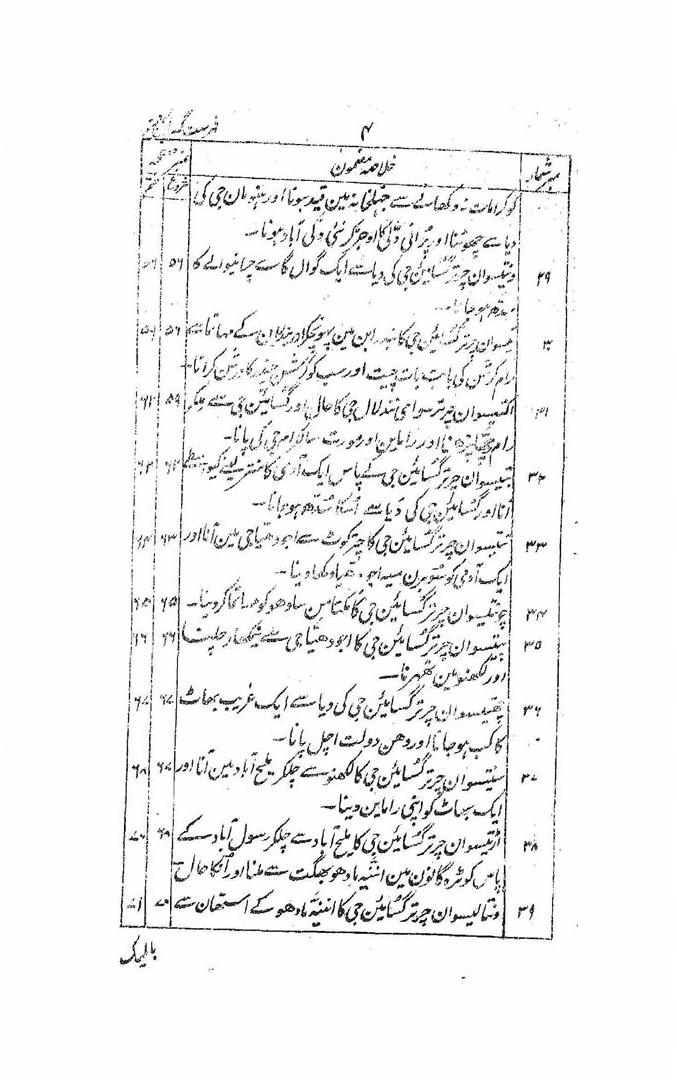 ۴
فہرست گسائین چرتر
نمبر شمار خلاصہ مضمون صفحہ شروع ختم
کو کرامات نہ دکھانے سے جہلخانہ مین قید ہونا اور ہنومان جی کی
دیا سے چھوٹنا اور پرانی دلی کا اوجڑ کر نئی دلی آباد ہونا۔
۲۹ ونتیسوان چرتر گسائین جی کی دیا سے ایک گوال گائے چرانیوالے کا ۵۶ ۵۶
سدھ ہو جانا۔
۳۰ تیسوان چرتر گسائین جی کا بندرابن مین پہونچکر اور بندرابن کے مہاتما سے ۵۶ ۵۹
رام کرشن کی بابت بات چیت اور سب کو کرشن چندر کا درشن کرانا۔
۳۱ اکتیسوان چرتر سوامی نندلال جی کا حال اور گسائین جی سے ملکر ۵۹ ۶۲
رام پڑھنا اور راماین اور مورت سالگرام جی کی پانا۔
۳۲ بتیسوان چرتر گسائین جی کے پاس ایک آدمی کا منتر لینے کیواسطے ۶۲ ۶۳
آنا اور گسائین جی کی دیا سے اسکا سدھ ہو جانا۔
۳۳ تیتیسوان چرتر گسائین جی کا چترکوٹ سے اجودھیا جی مین آنا اور ۶۳ ۶۴
ایک آدمی کو سوبرن اجودھیا دکھا دینا۔
۳۴ چونتیسوان چرتر گسائین جی کا مکتامن سادھو کو کر دینا۔ ۶۵ ۶۵
۳۵ پینتیسوان چرتر گسائین جی کا اجودھیا جی سے نیمکھار چلنا ۶۶ ۶۶
اور لکھنؤ مین ٹھہرنا۔
۳۶ چھتیسوان چرتر گسائین جی کی دیا سے ایک غریب بھاٹ ۶۷ ۶۷
کا کب ہو جانا اور دھن دولت اچل پانا۔
۳۷ سینتیسوان چرتر گسائین جی کا لکھنؤ سے چلکر ملیح آباد مین آنا اور ۶۷ ۶۸
ایک بھاٹ کو اپنی راماین دینا۔
۳۸ اڑتیسوان چرتر گسائین جی کا ملیح آباد سے چلکر رسول آباد کے ۶۸ ۷۰
پاس کوٹرہ گانون مین اننیہ مادھو بھگت سے ملنا اور انکا حال
۳۹ ونتالیسوان چرتر گسائین جی کا اننیہ مادھو کے استھان سے ۷۰ ۷۱
بالمیک